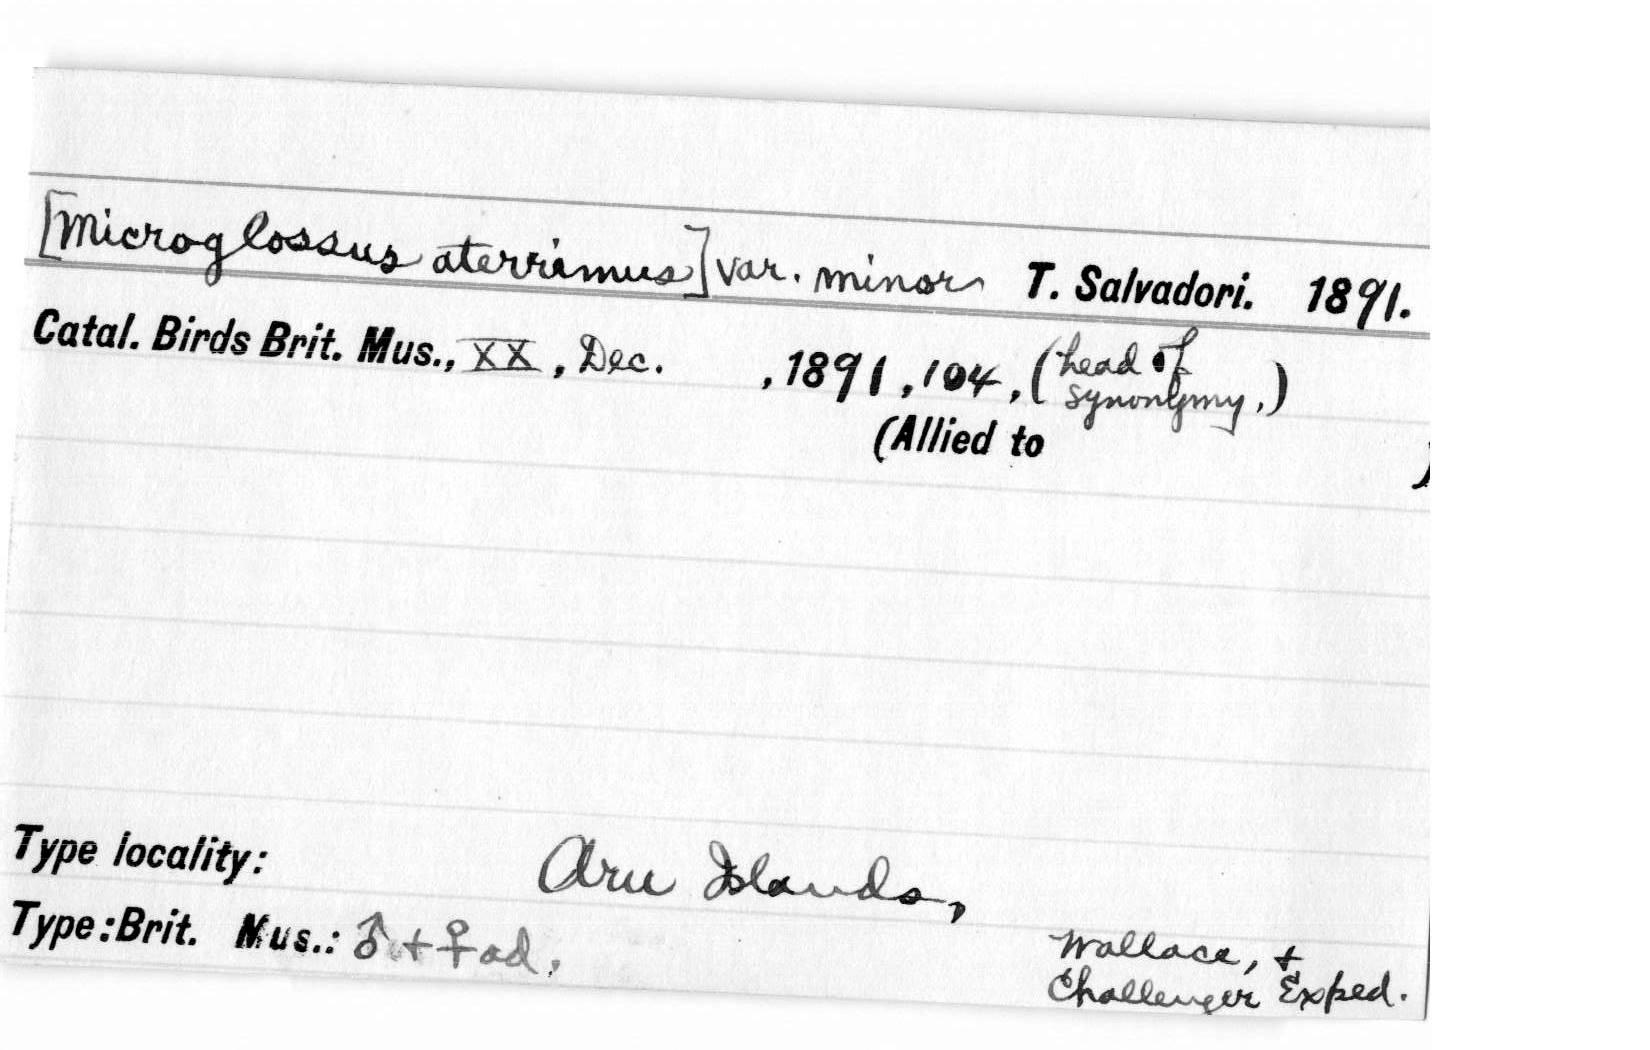 [Microglossus aterrimus] var. minor T. Salvadori. 1891.
Catal. Birds Brit. Mus., XX, Dec. , 1891, 104, (head of
synonymy,)
(Allied to )
Type locality: Aru Islands,
Type: Brit. Mus.: ♂ + ♀ ad.
Wallace, +
Challenger Exped.